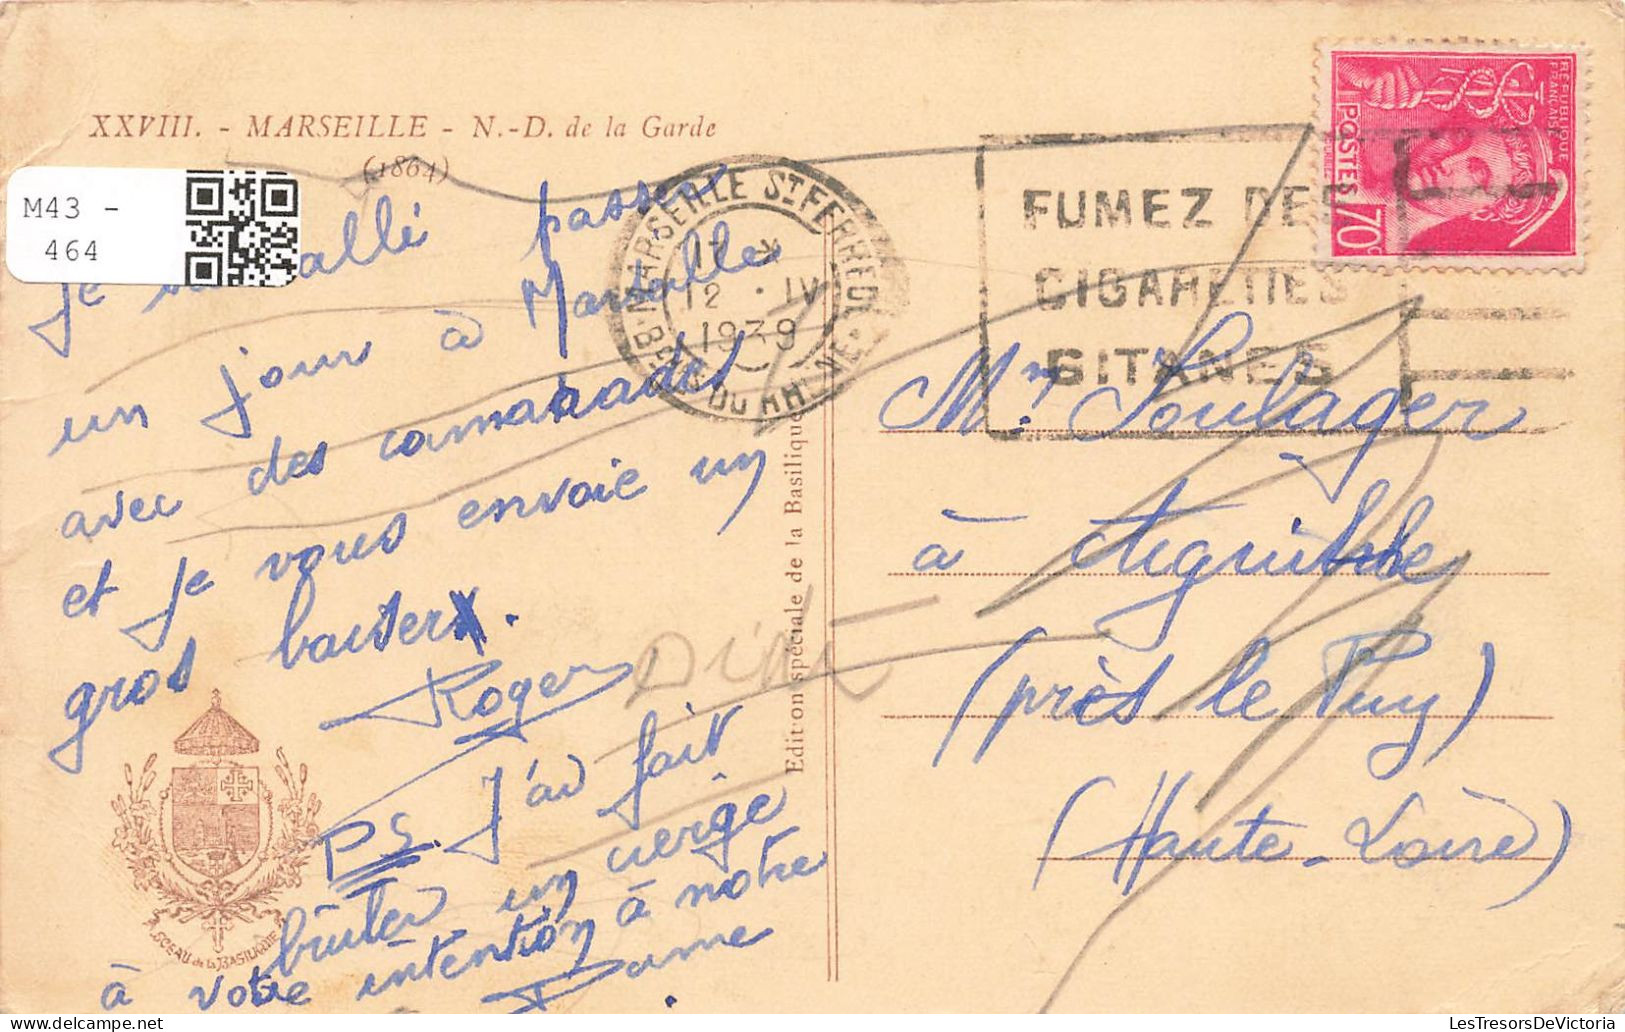 XXVIII. - MARSEILLE - N.-D. de la Garde
(1864)
M43 -
464
Je allé passer
un jour à Marseille
avec des camarades
et je vous envoie un
gros baiser.
Roger
PS. J'ai fait
brûler un cierge
à votre intention à notre
Dame.
SCEAU de la BASILIQUE
Edition spéciale de la Basilique
MARSEILLE ST FERREOL
17
12 . IV
1939
BCHES DU RHÔNE
FUMEZ DES
CIGARETTES
GITANES
REPUBLIQUE
FRANÇAISE
POSTES
70c
Mr. Soulager
à Aiguilhe
(près le Puy)
(Haute-Loire)
LesTresorsDeVictoria